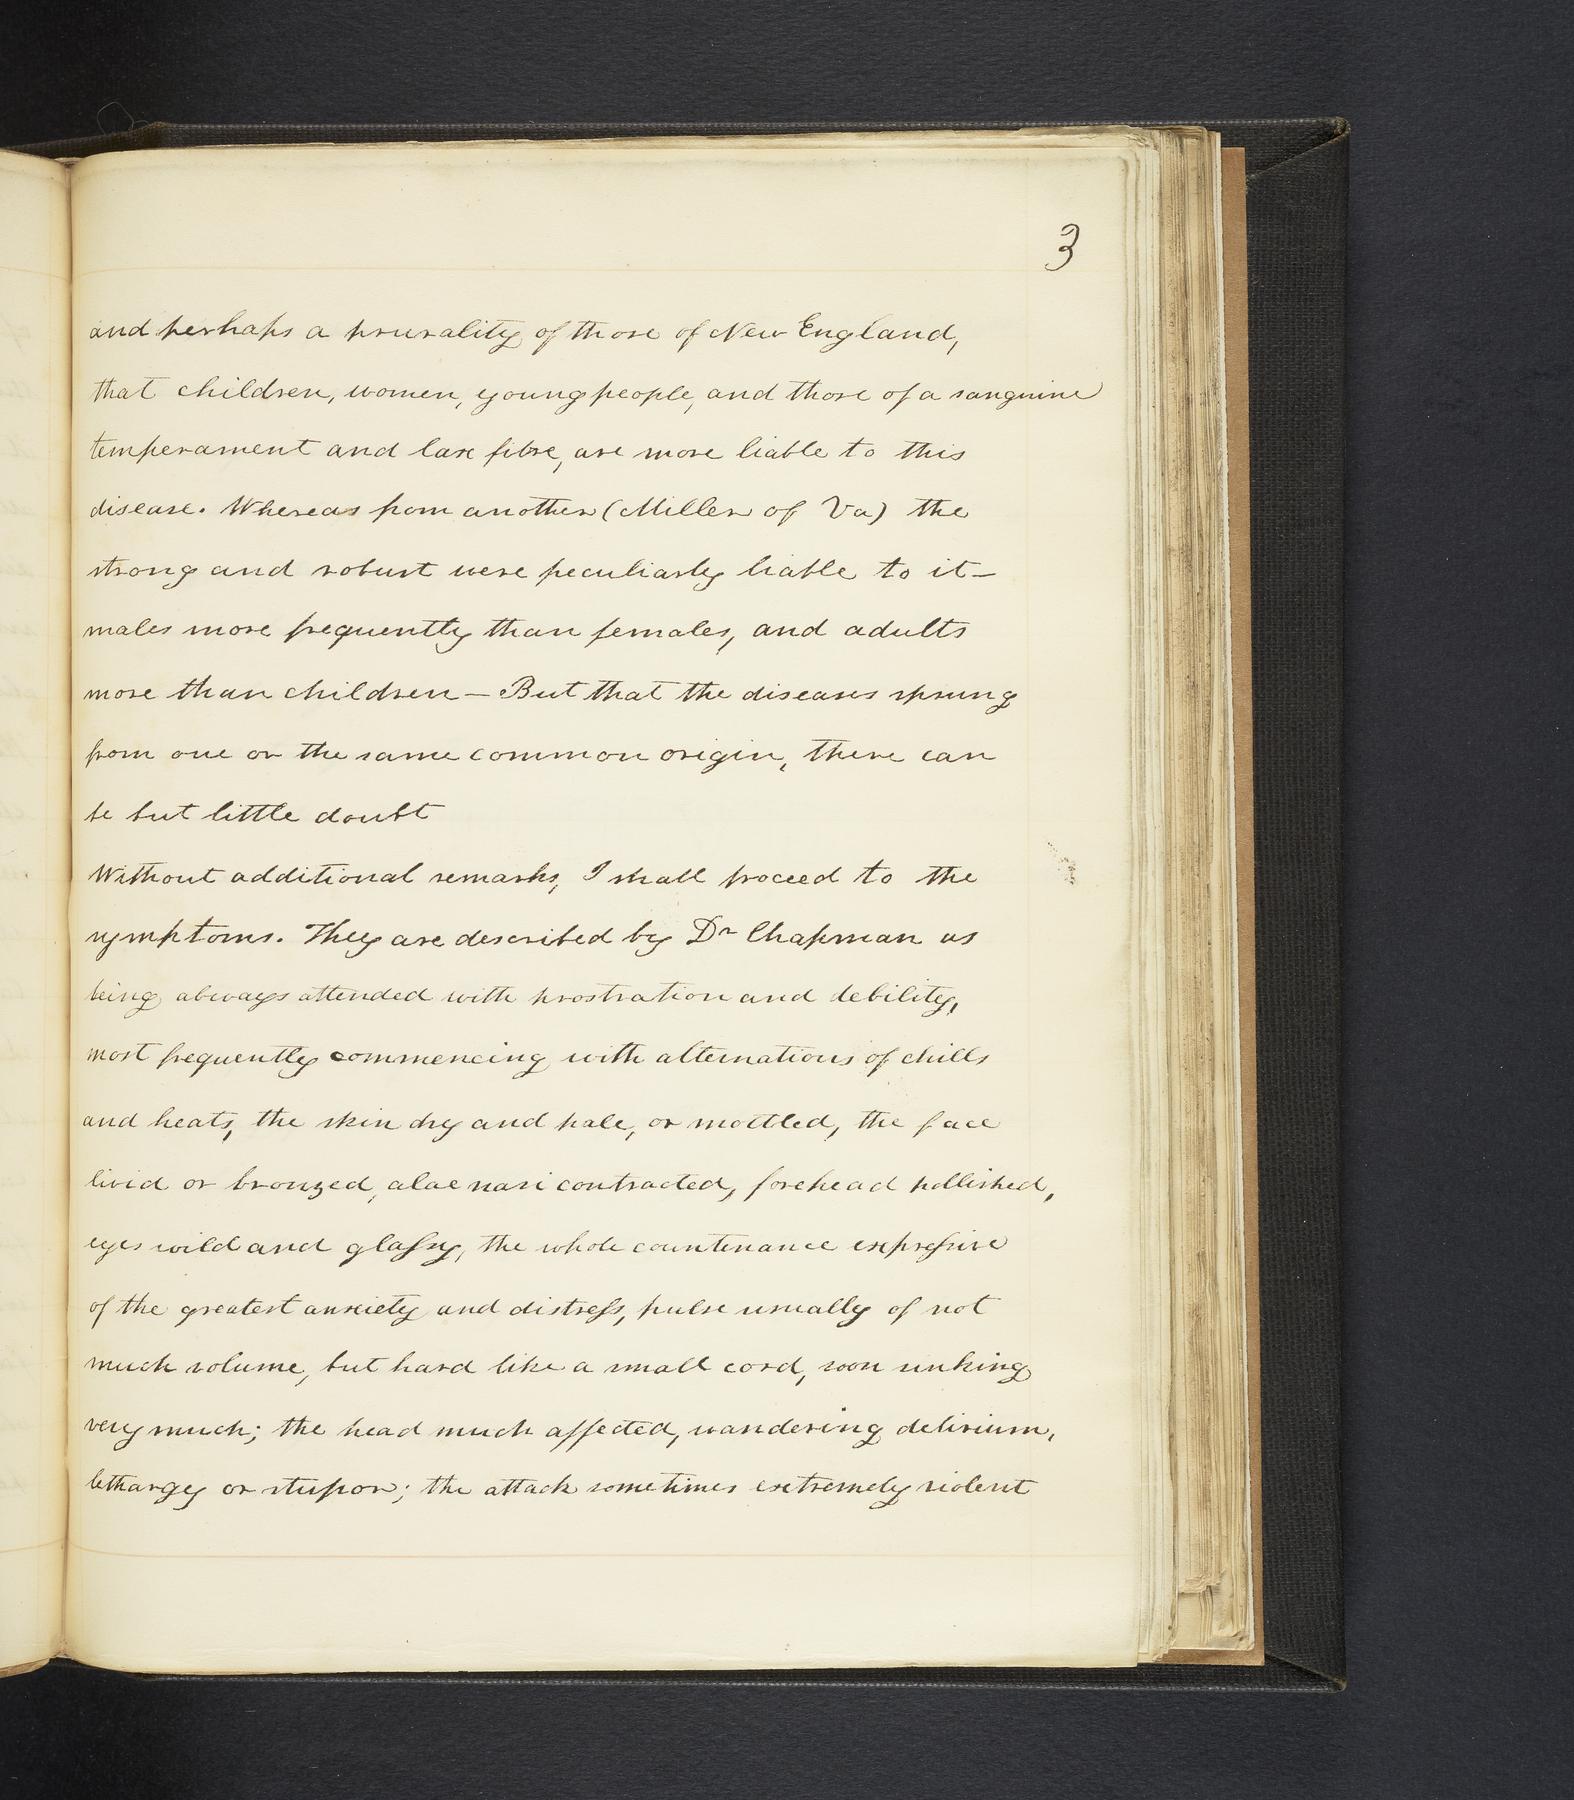 3
and perhaps a prurality of those of New England,
that children, women, young people, and those of a sanguine
temperament and lax fibre, are more liable to this
disease. Whereas from another (Miller of Va) the
strong and robust were peculiarly liable to it—
males more frequently than females, and adults
more than children — But that the diseases sprung
from one or the same common origin, there can
be but little doubt
Without additional remarks, I shall proceed to the
symptoms. They are described by Dr Chapman as
being always attended with prostration and debility,
most frequently commencing with alternations of chills
and heats, the skin dry and pale, or mottled, the face
livid or bronzed, alae nasi contracted, forehead pollished,
eyes wild and glaſsy, the whole countenance expreſsive
of the greatest anxiety and distreſs, pulse usually of not
much volume, but hard like a small cord, soon sinking
very much; the head much affected, wandering delirium,
lethargy or stupor; the attack sometimes extremely violent